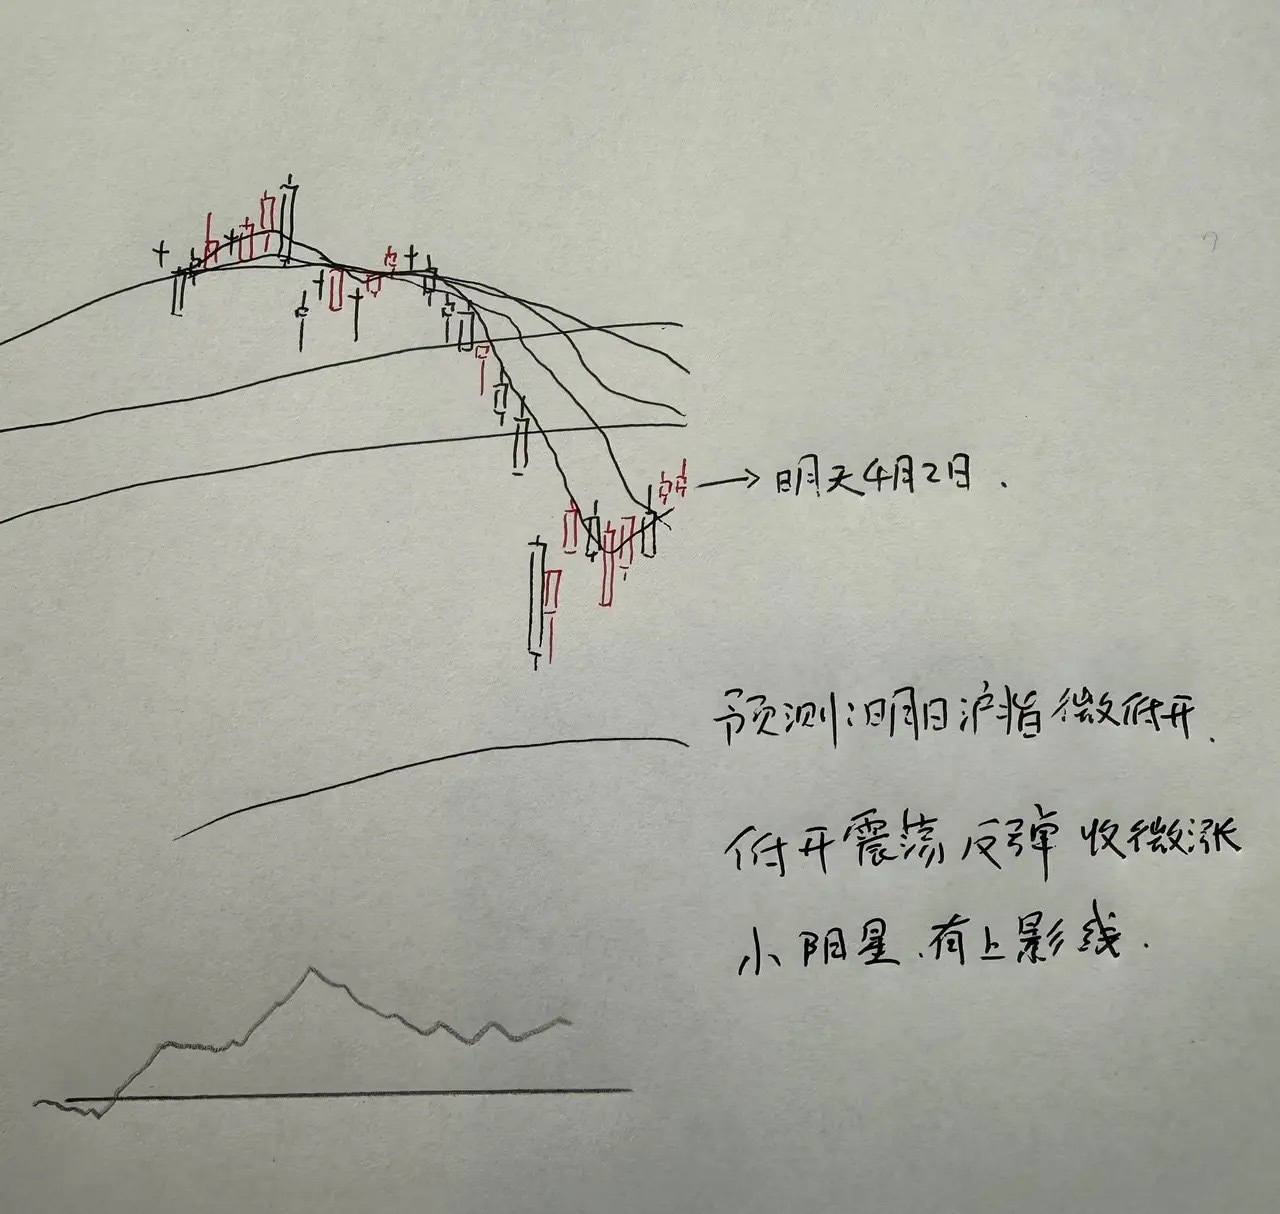 明天4月2日.
预测:明日沪指微低开.
低开震荡反弹收微涨
小阳星.有上影线.